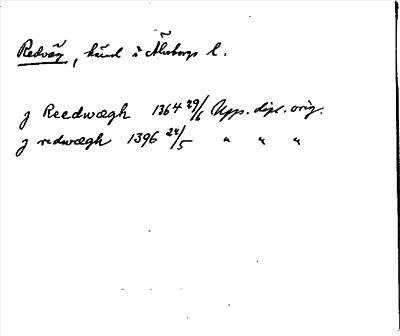 Redväg, härad i Älvsborgs l.
J Reedwægh 1364 29/6 Upps. dipl. orig.
J redwægh 1396 24/5 " " "